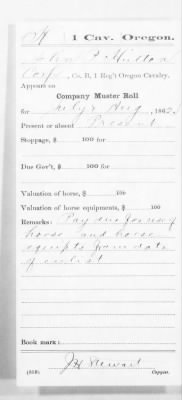 H 1 Cav. Oregon.
Hilton
Corp., Co. B, 1 Reg't Oregon Cavalry.
Appears on
Company Muster Roll
for July & Aug, 1862.
Present or absent Present
Stoppage, $ 100 for
Due Gov't, $ 100 for
Valuation of horse, $ 100
Valuation of horse equipments, $ 100
Remarks: Pay due for use of
horse and horse
equipts from date
of enlist
Book mark:
J H Stewart
(358) Copyist.